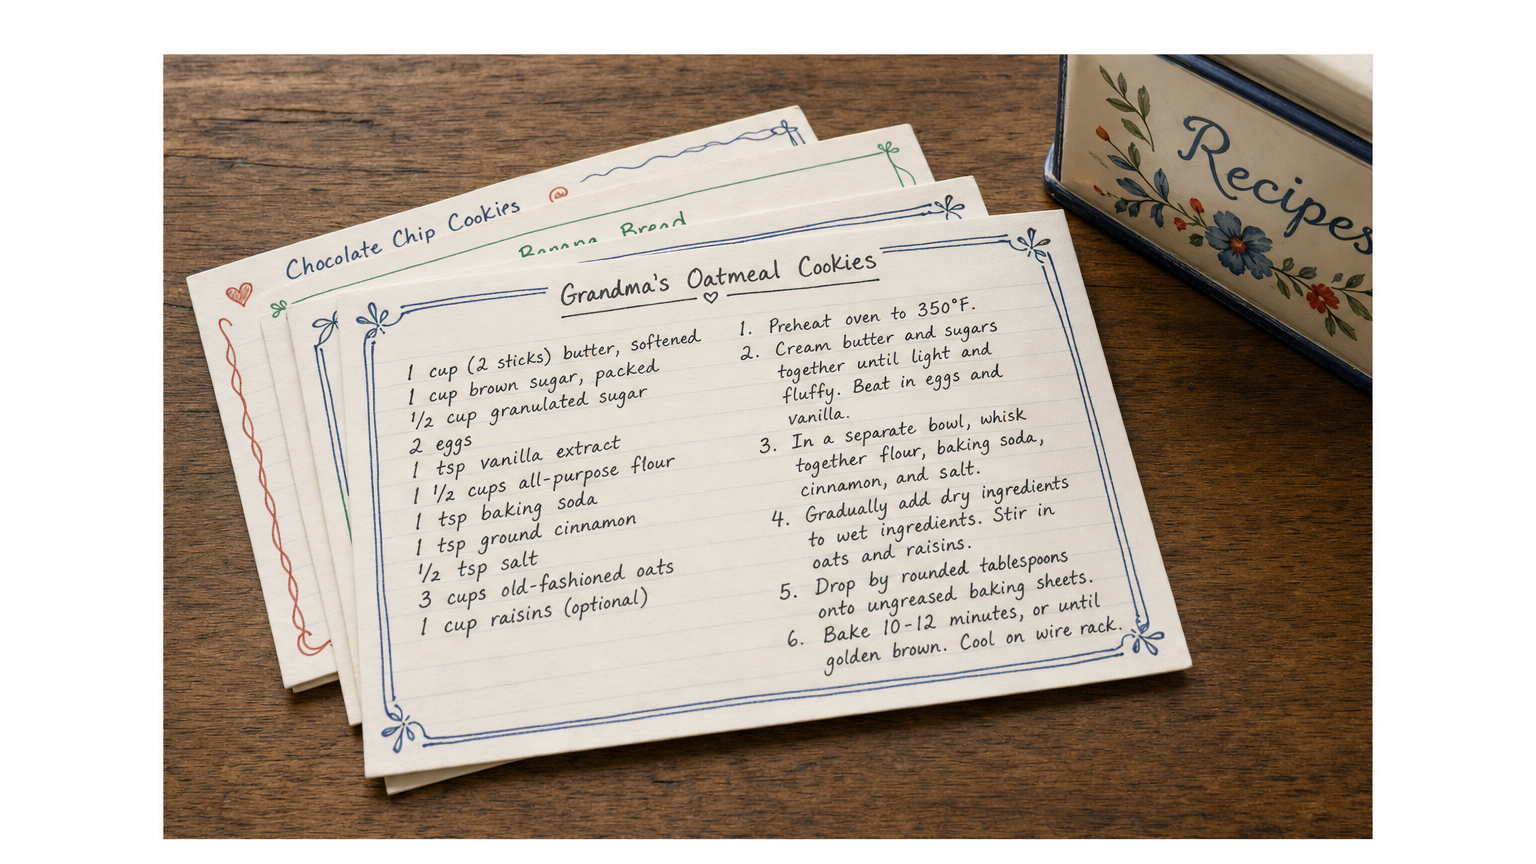 Recipes
Chocolate Chip Cookies
Banana Bread
Grandma's Oatmeal Cookies
1 cup (2 sticks) butter, softened
1 cup brown sugar, packed
1/2 cup granulated sugar
2 eggs
1 tsp vanilla extract
1 1/2 cups all-purpose flour
1 tsp baking soda
1 tsp ground cinnamon
1/2 tsp salt
3 cups old-fashioned oats
1 cup raisins (optional)
1. Preheat oven to 350°F.
2. Cream butter and sugars
together until light and
fluffy. Beat in eggs and
vanilla.
3. In a separate bowl, whisk
together flour, baking soda,
cinnamon, and salt.
4. Gradually add dry ingredients
to wet ingredients. Stir in
oats and raisins.
5. Drop by rounded tablespoons
onto ungreased baking sheets.
6. Bake 10-12 minutes, or until
golden brown. Cool on wire rack.